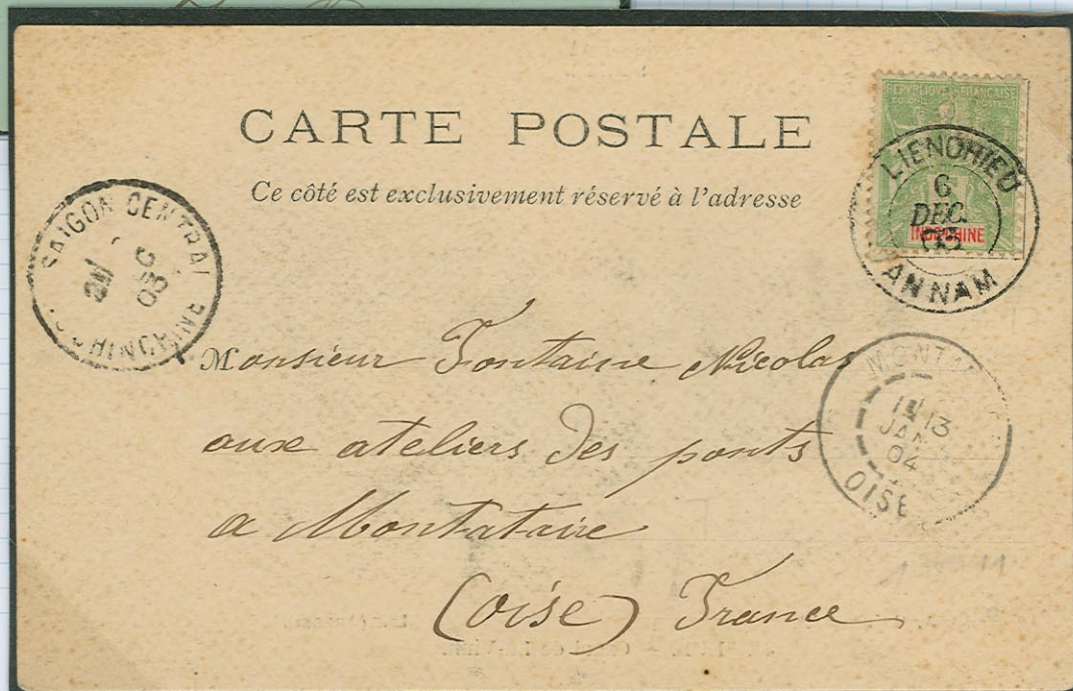 CARTE POSTALE
Ce côté est exclusivement réservé à l'adresse
REPUBLIQUE FRANÇAISE
INDO-CHINE
LIENCHIEU
6
DEC.
03
ANNAM
SAIGON CENTRAL
DEC
03
COCHINCHINE
Monsieur Fontaine Nicolas
aux ateliers des ponts
a Montataire
(Oise) France
13
JAN
04
OISE